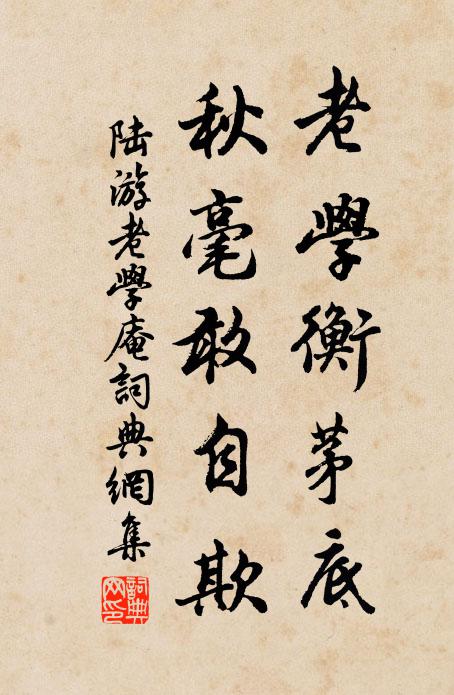 老學衡茅底
秋毫敢自欺
陸游老學庵詞典網集
詞典
网印